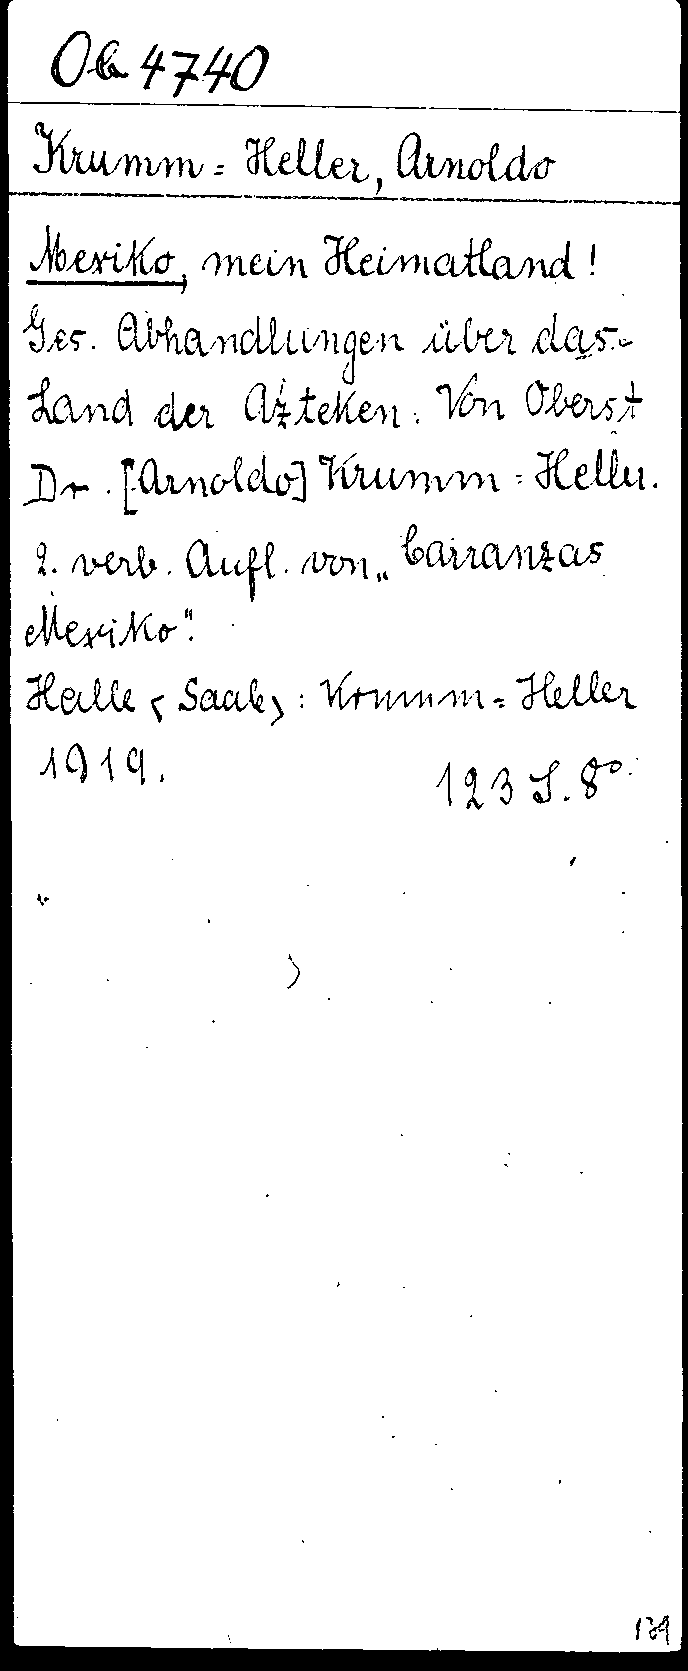 Ob 4740
Krumm=Heller, Arnoldo
Mexiko, mein Heimatland!
Ges. Abhandlungen über das
Land der Azteken. Von Oberst
Dr. [Arnoldo] Krumm=Heller.
2. verb. Aufl. von „Carranzas
Mexiko".
Halle <Saale>: Krumm=Heller
1919.
123 S. 8°